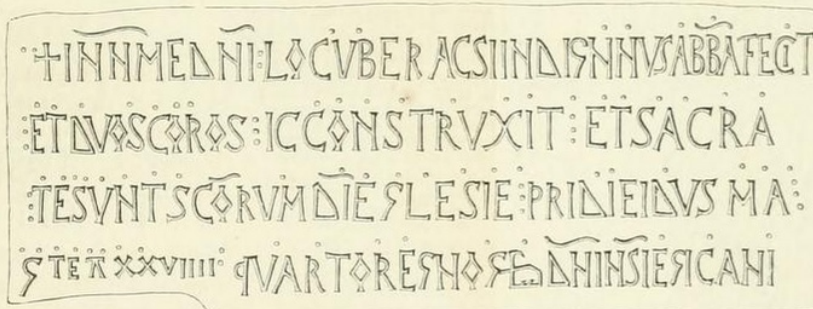 +INNMEDNI:LOCVBER ACSIINDIGNNVSABBAFECIT
:ETDVOSCOROS:ICCONSTRVXIT:ETSACRA
:TESVNTSCORVMDIEGLESIE:PRIDIEIDVS MA:
GTEA XXVIIII QVARTOREGNO DNINSIEGICANI